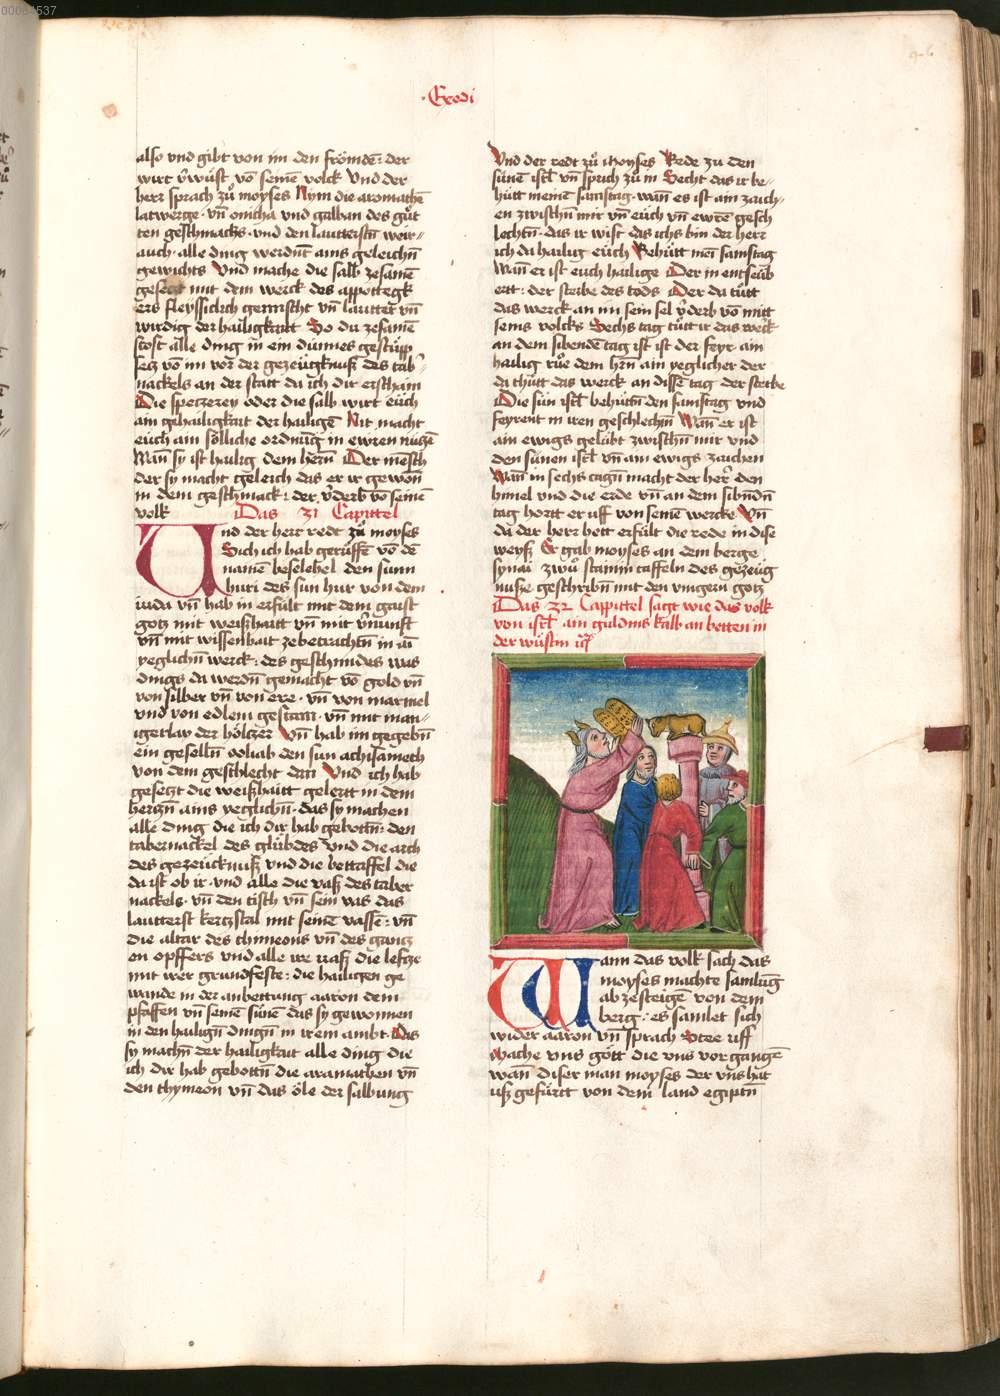 00084537
Exodi
also vnd gibt von im den frömdē: der
wirt v̓wüst vō seinē volck Vnd der
herr sprach zů moyses Nym die aromathē
latwerge · vn̄ onicha vnd galban des gůt
ten geschmachs · vnd den lautterstn̄ weir//
auch · alle ding werdnt ains geleichn̄
gewichts Vnd mache die salb zesamē
gesetzt mit dem werck des appottegk
ers fleyssiclich gemischt vn̄ lautter vn̄
wirdig der hailigkait So du zesamē
stost alle ding in ein dünnes gestüpp
setz vō im vor der gezeügknuß des tab//
nackels an der statt da ich dir erschain
Die speczerey oder die salb wirt eüch
ain gehailigkait der hailigē Nit macht
eüch ain sölliche ordnūg in ewren nüczē
Wan̄ sy ist hailig dem hern̄ Der mēsch
der sy macht geleich das er ir gewon̄
in dem geschmack: der v̓derb vō seinē
volk Das 31 Capittel
Vnd der herr redt zů moyses
Sich ich hab gerüffē vō dē
namē beselehel den sunn
huri des sun hur von dem
iuda vn̄ hab in erfült mit dem gaist
gotz mit weißhaitt vn̄ mit v̓nunft
vn̄ mit wissenhait zebetrachtn̄ in ai
yeglichn̄ werck: des geschmides was
dings da werdn̄ gemacht vō gold vn̄
von silber vn̄ von ere · vn̄ von marmel
vnd von edlem gestain · vn̄ mit man//
igerlay der höltzer Vn̄ hab im gegebn̄
ein geselln̄ ooliab den sun achisamech
von dem geschlecht dan Vnd ich hab
gesetzt die weißhaitt gelertt in dem
hertzn̄ ains yeglichn̄ · das sy machen
alle ding die ich dir hab gebottn̄: den
tabernackel des glübdes vnd die arch
des gezeücknuß vnd die bettaffel die
da ist ob ir · vnd alle die vaß des taber
nackels · vn̄ den tisch vn̄ sein vas das
lautterst kertzstal mit seinē vassē: vn̄
die altar des thimeons vn̄ des gantz
en opffers vnd alle ire vaß die leftze
mit irer grundfeste: die hailigen ge
wande in der anbettung aaron dem
pfaffen vn̄ seinē sünē das sy gewonnen
in den hailign̄ dingn̄ in irem ambt · Das
sy machn̄ der hailigkait alle ding die
ich dir hab gebottn̄ die aramathen vn̄
den thymeon vn̄ das öle der salbung
Vnd der redt zů moyses Rede zu den
sünē isrl̄ vn̄ sprich zů in Secht das ir be//
hütt meinē samstag · wan̄ es ist ain zaich//
en zwischn̄ mir vn̄ eüch vn̄ ewrē gesch
lechtn̄ · das ir wist das ichs bin der herr
ich da hailig eüch Behütt mein samstag
Wan̄ er ist euch hailige Der in entseüb
ertt: der sterbe des tods Der da tůtt
das werck an im sein sel v̓derb vō mitt
seins volcks Sechs tag tůtt ir das werck
an dem sibendē tag ist ist der feyr · ain
hailig růe dem hrn̄ ain yeglicher der
da thůtt das werck an dissē tag der sterbe
Die sün isrl̄ behüttn̄ den samstag vnd
feyrent in iren geschlechn̄ Wan̄ er ist
ain ewigs gelübt zwischn̄ mir vnd
den sünen isrl̄ vn̄ ain ewigs zaichen
Wan̄ in sechs tagn̄ macht der her̄ den
himel vnd die erde vn̄ an dem sibndn̄
tag hortt er uff von seinē wercke Vn̄
da der herr hett erfült die rede in dise
weyß Er gab moyses an dem berge
synai zwů stainin taffeln des gezeüg
nuße geschribn̄ mit den vingern gotz
Das 32 Cappittel sagt wie das volk
von isrl̄ ain guldins kalb an betten in
der wüstin
Wann das volk sach das
moyses machte samūg
ab zesteigē von dem
berg · es samlet sich
wider aaron vn̄ sprach Stee uff
Mache vns gött die vns vor gangē
wan̄ diser man moyses der vns hat
uß gefürtt von dem land egiptn̄